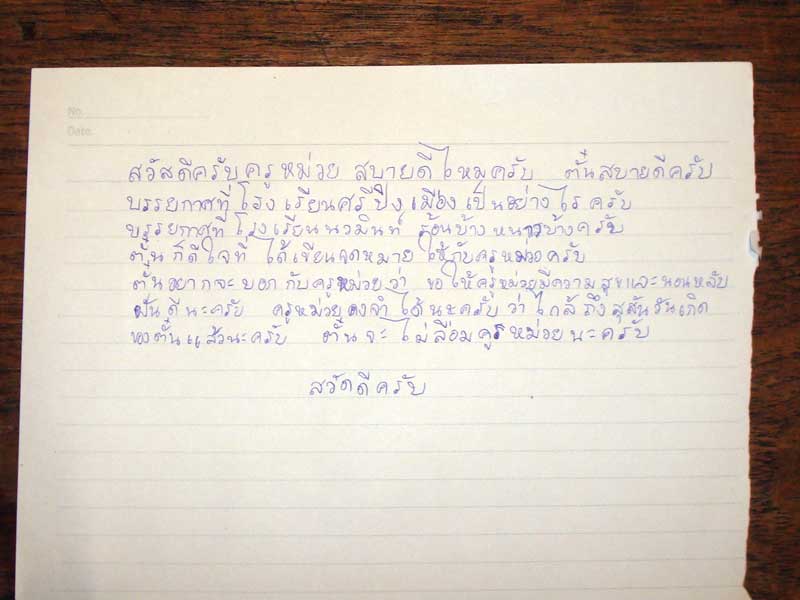 No.
Date.
สวัสดีครับครูหม่วย สบายดีไหมครับ ตั้นสบายดีครับ
บรรยกาศที่โรงเรียนศรีปิงเมืองเป็นอย่างไรครับ
บรรยกาศที่โรงเรียนนวมินท์ ร้อนบ้างหนาวบ้างครับ
ตั้นก็ดีใจที่ได้เขียนจดหมายให้กับครูหม่วยครับ
ตั้นอยากจะบอกกับครูหม่วยว่า ขอให้ครูหม่วยมีความสุขและนอนหลับ
ฝันดีนะครับ ครูหม่วยคงจำได้นะครับว่าใกล้ถึงสุสันวันเกิด
ของตั้นแล้วนะครับ ตั้นจะไม่ลืมครูหม่วยนะครับ
สวัดดีครับ